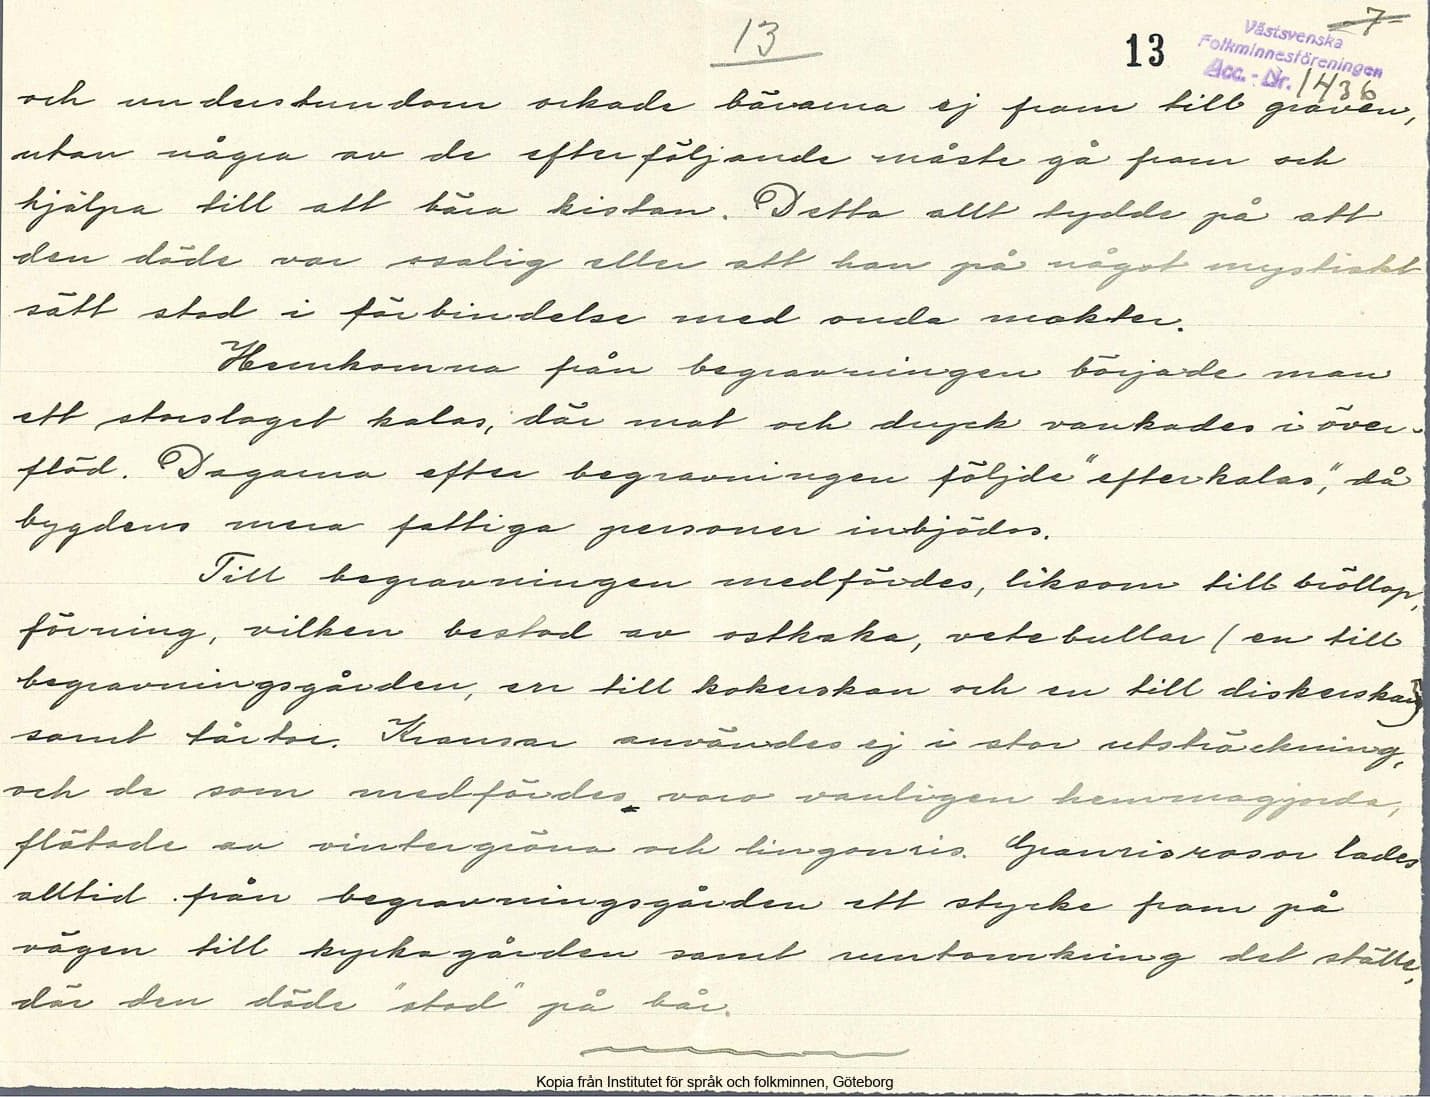 13
13
7
Västsvenska
Folkminnesföreningen
Acc.-Nr. 1436
och understundom orkade bärarna ej fram till graven,
utan några av de efterföljande måste gå fram och
hjälpa till att bära kistan. Detta allt tydde på att
den döde var osalig eller att han på något mystiskt
sätt stod i förbindelse med onda makter.
Hemkomna från begravningen började man
ett storslaget kalas, där mat och dryck vankades i över-
flöd. Dagarna efter begravningen följde "efterkalas", då
bygdens mera fattiga personer inbjödos.
Till begravningen medfördes, liksom till bröllop,
förning, vilken bestod av ostkaka, vetebullar (en till
begravningsgården, en till kokerskan och en till diskerskan)
samt tårtor. Kransar användes ej i stor utsträckning,
och de som medfördes voro vanligen hemmagjorda,
flätade av vintergröna och lingonris. Granrisrosor lades
alltid från begravningsgården ett stycke fram på
vägen till kyrkogården samt runtomkring det ställe,
där den döde "stod" på bår.
Kopia från Institutet för språk och folkminnen, Göteborg